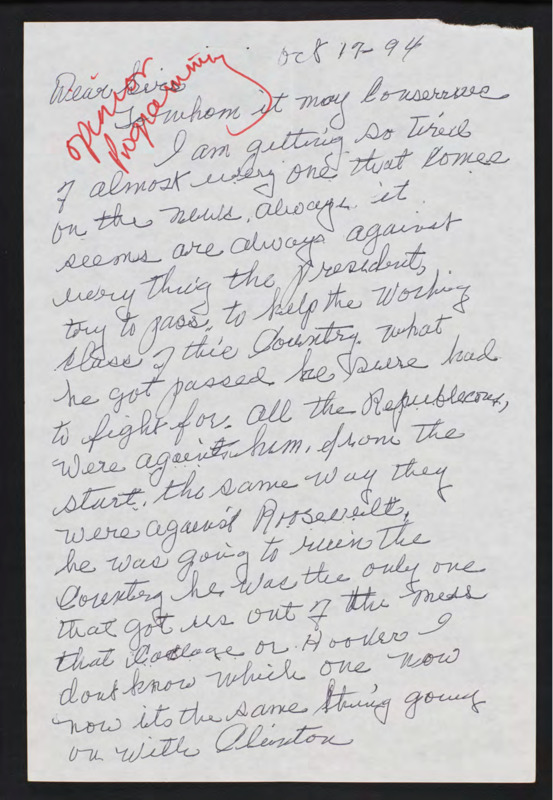 Oct 17-94
Dear Sirs
opinion
Programming
To whom it may
I am getting so Tired
of almost every one that Comes
on the news, always it
seems are always against
every thing the President,
try to pass, to help the Working
Class of this Country. what
he got passed he sure had
to fight for. all the
Were him, from the
start, the same way they
were against
he was going to ruin the
Country he was the only one
that got us out of the mess
that or Hoover I
dont know which one now
now its the same thing going
on with Clinton